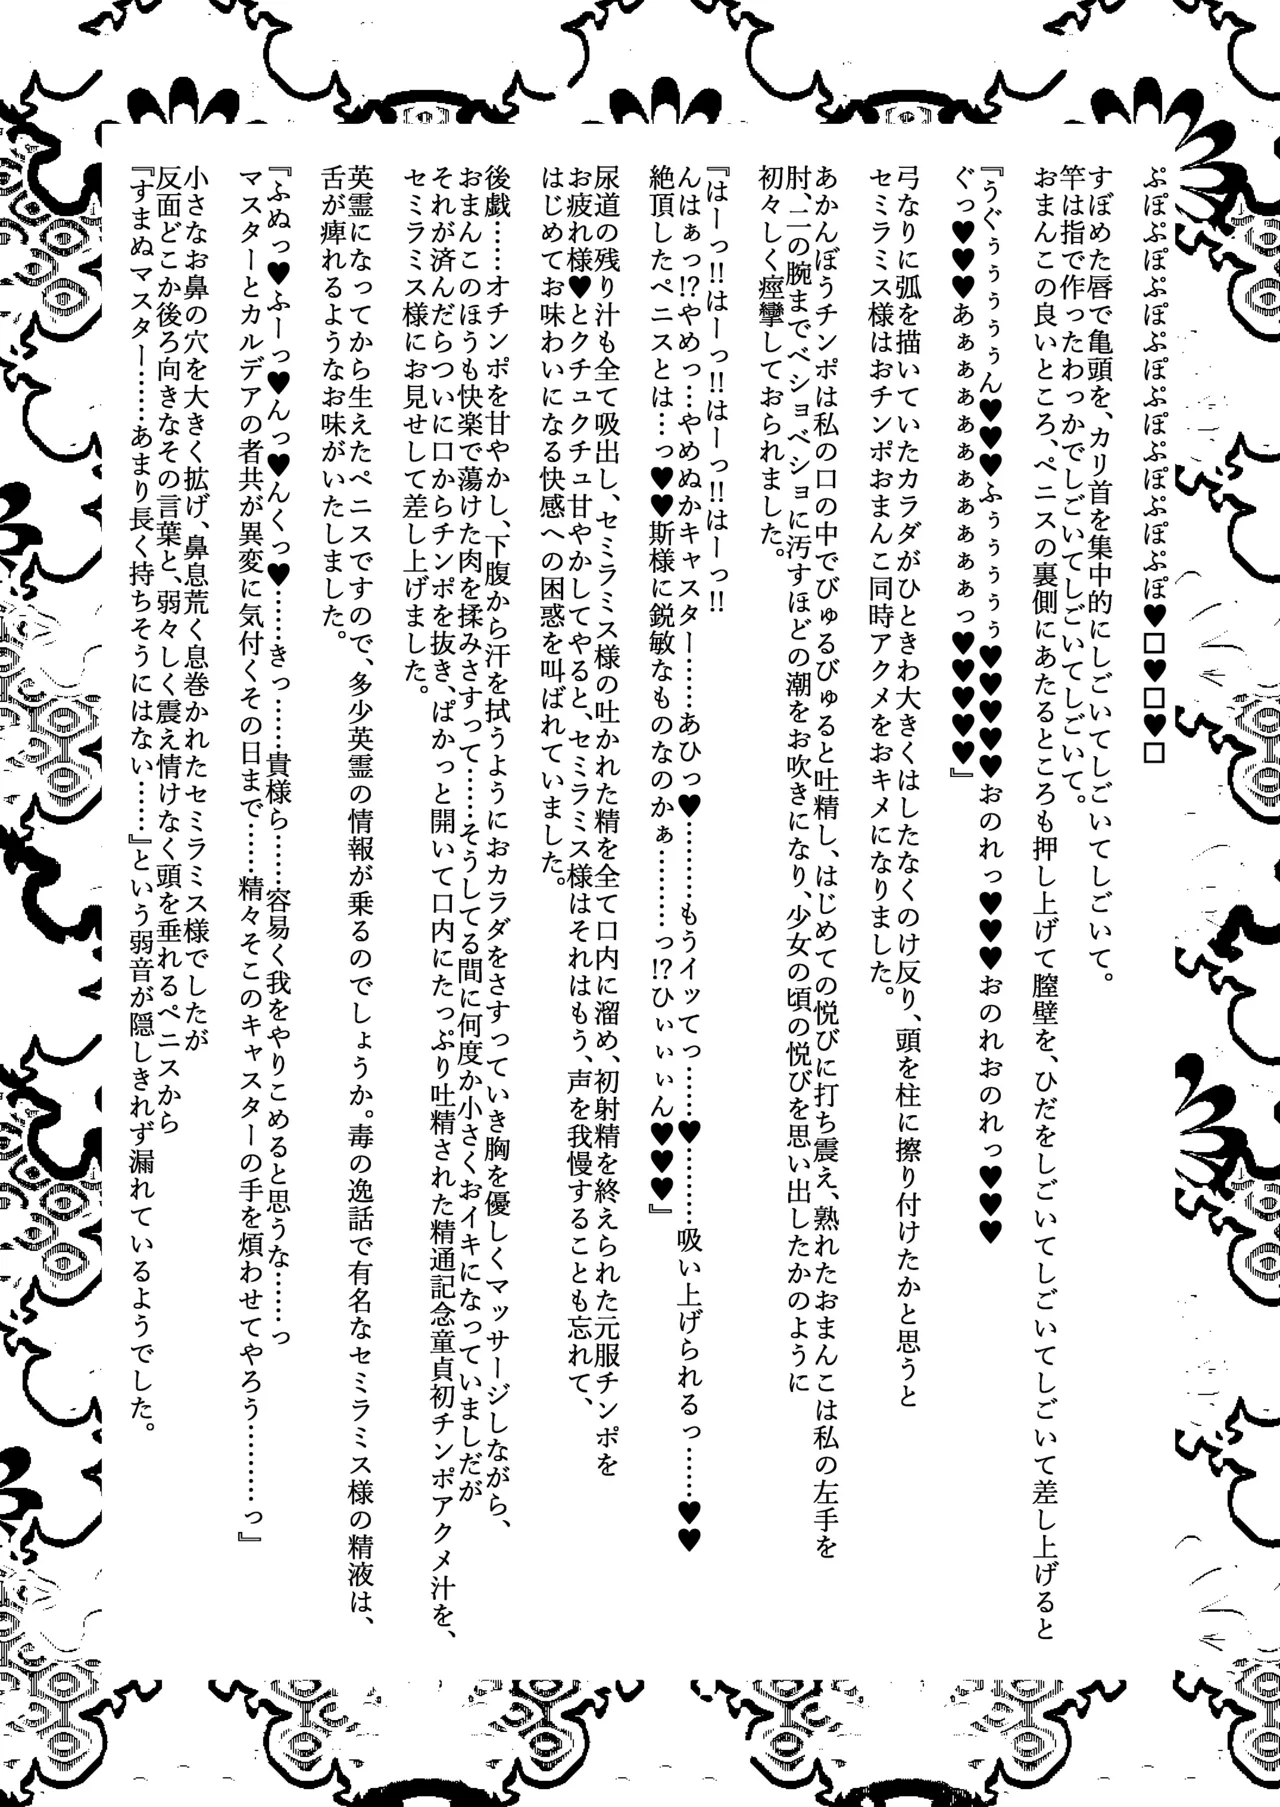 ぷぽぷぽぷぽぷぽぷぽぷぽぷぽ♥□♥□♥□
すぼめた唇で亀頭を、カリ首を集中的にしごいてしごいてしごいて。
竿は指で作ったわっかでしごいてしごいてしごいて。
おまんこの良いところ、ペニスの裏側にあたるところも押し上げて膣壁を、ひだをしごいてしごいてしごいて差し上げると
『うぐぅぅぅぅぅん♥♥♥ふぅぅぅぅぅ♥♥♥♥♥おのれっ♥♥♥おのれおのれっ♥♥♥
ぐっ♥♥♥♥あぁぁぁぁぁぁぁぁぁぁっ♥♥♥♥♥』
弓なりに弧を描いていたカラダがひときわ大きくはしたなくのけ反り、頭を柱に擦り付けたかと思うと
セミラミス様はおチンポおまんこ同時アクメをおキメになりました。
あかんぼうチンポは私の口の中でびゅるびゅると吐精し、はじめての悦びに打ち震え、熟れたおまんこは私の左手を
肘、二の腕までベショベショに汚すほどの潮をお吹きになり、少女の頃の悦びを思い出したかのように
初々しく痙攣しておられました。
『はーっ!!はーっ!!はーっ!!はーっ!!
んはぁっ!?やめっ…やめぬかキャスター……あひっ♥………もうイッてっ……♥………吸い上げられるっ……♥♥
絶頂したペニスとは…っ♥♥斯様に鋭敏なものなのかぁ………っ!?ひぃぃぃん♥♥♥』
尿道の残り汁も全て吸出し、セミラミス様の吐かれた精を全て口内に溜め、初射精を終えられた元服チンポを
お疲れ様♥とクチュクチュ甘やかしてやると、セミラミス様はそれはもう、声を我慢することも忘れて、
はじめてお味わいになる快感への困惑を叫ばれていました。
後戯……オチンポを甘やかし、下腹から汗を拭うようにおカラダをさすっていき胸を優しくマッサージしながら、
おまんこのほうも快楽で蕩けた肉を揉みさすって……そうしてる間に何度か小さくおイキになっていましだが
それが済んだらついに口からチンポを抜き、ぱかっと開いて口内にたっぷり吐精された精通記念童貞初チンポアクメ汁を、
セミラミス様にお見せして差し上げました。
英霊になってから生えたペニスですので、多少英霊の情報が乗るのでしょうか。毒の逸話で有名なセミラミス様の精液は、
舌が痺れるようなお味がいたしました。
『ふぬっ♥ふーっ♥んっ♥んくっ♥……きっ……貴様ら……容易く我をやりこめると思うな……っ
マスターとカルデアの者共が異変に気付くその日まで……精々そこのキャスターの手を煩わせてやろう………っ』
小さなお鼻の穴を大きく拡げ、鼻息荒く息巻かれたセミラミス様でしたが
反面どこか後ろ向きなその言葉と、弱々しく震え情けなく頭を垂れるペニスから
『すまぬマスター……あまり長く持ちそうにはない……』という弱音が隠しきれず漏れているようでした。